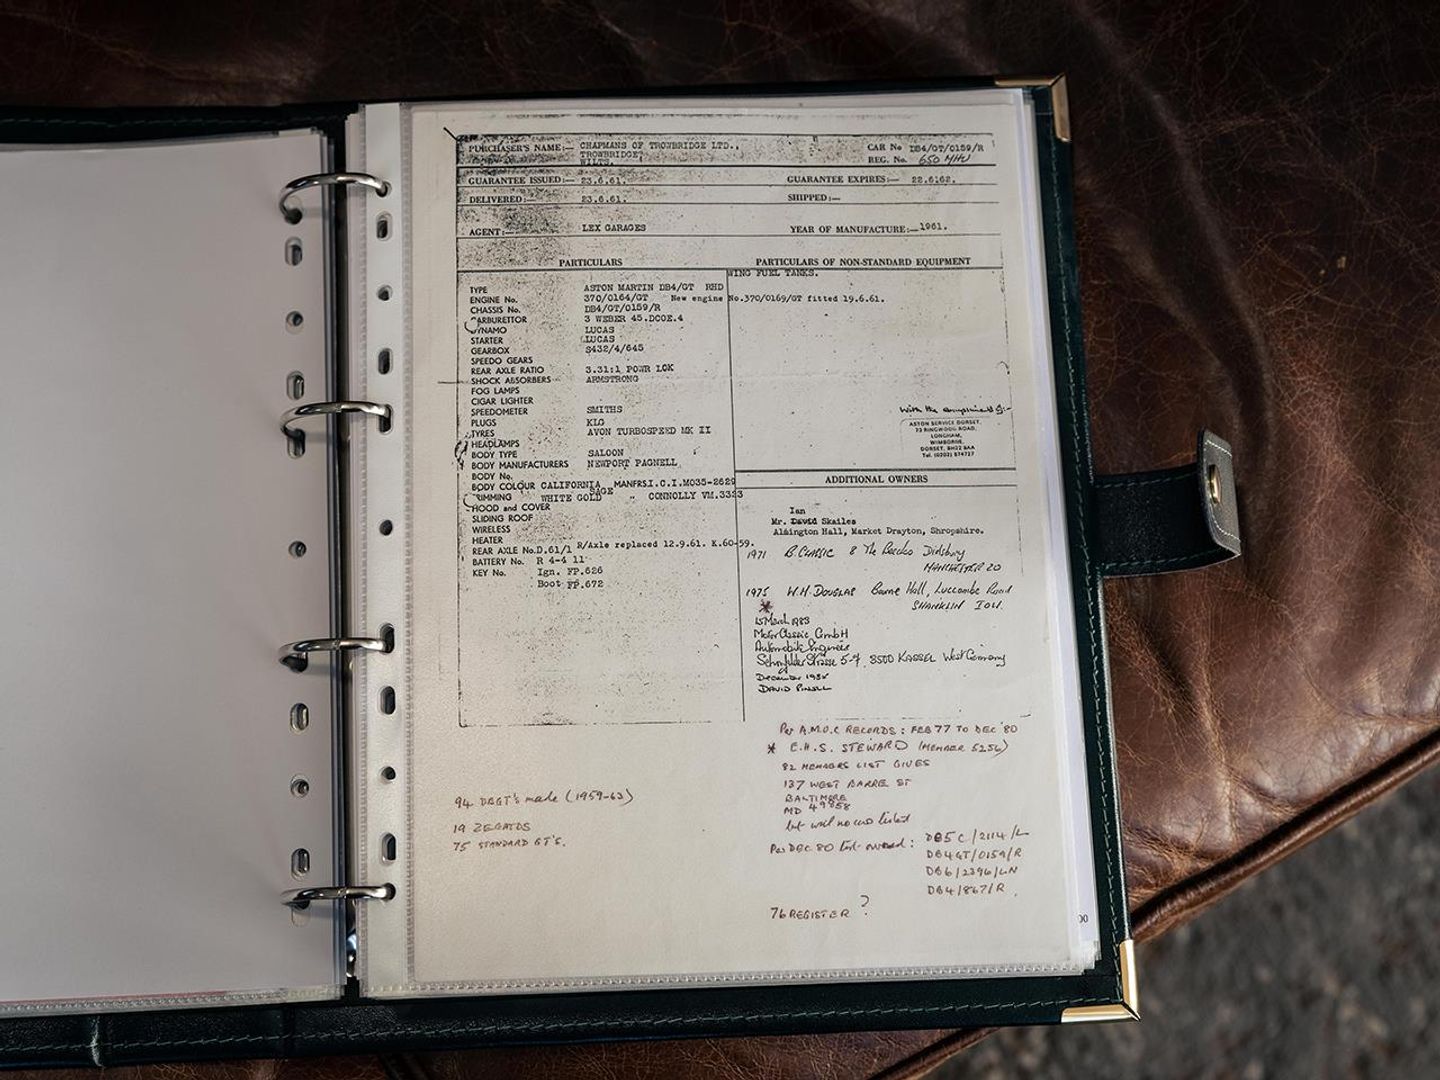 PURCHASER'S NAME:— CHAPMANS OF TROWBRIDGE LTD.,
TROWBRIDGE,
WILTS.
CAR No DB4/GT/0159/R
REG. No. 650 MHW
GUARANTEE ISSUED:— 23.6.61. GUARANTEE EXPIRES:— 22.6.62.
DELIVERED:— 23.6.61. SHIPPED:—
AGENT:— LEX GARAGES YEAR OF MANUFACTURE:— 1961.
PARTICULARS
TYPE ASTON MARTIN DB4/GT RHD
ENGINE No. 370/0164/GT New engine No.370/0169/GT fitted 19.6.61.
CHASSIS No. DB4/GT/0159/R
CARBURETTOR 3 WEBER 45.DCOE.4
DYNAMO LUCAS
STARTER LUCAS
GEARBOX S432/4/645
SPEEDO GEARS
REAR AXLE RATIO 3.31:1 POWR LOK
SHOCK ABSORBERS ARMSTRONG
FOG LAMPS
CIGAR LIGHTER
SPEEDOMETER SMITHS
PLUGS KLG
TYRES AVON TURBOSPEED MK II
HEADLAMPS
BODY TYPE SALOON
BODY MANUFACTURERS NEWPORT PAGNELL
BODY No.
BODY COLOUR CALIFORNIA SAGE MANFRS.I.C.I.M035-2629
TRIMMING WHITE GOLD " CONNOLLY VM.3323
HOOD and COVER
SLIDING ROOF
WIRELESS
HEATER
REAR AXLE No. D.61/1 R/Axle replaced 12.9.61. K.60-59.
BATTERY No. R 4-4 11
KEY No. Ign. FP.626
Boot FP.672
PARTICULARS OF NON-STANDARD EQUIPMENT
WING FUEL TANKS.
With the compliments of:-
ASTON SERVICE DORSET,
73 RINGWOOD ROAD,
LONGHAM,
WIMBORNE,
DORSET, BH22 9AA
Tel. (0202) 574727
ADDITIONAL OWNERS
Ian
Mr. DAVID Skailes
Market Drayton, Shropshire.
1971 B. CLASSIC 8 The Beeches Didsbury
MANCHESTER 20
1975 W.H. DOUGLAS Bourne Hall, Luccombe Road
* SHANKLIN I O W.
15 March 1983
Motor Classic GmbH
Automobile
5-7, 3500 KASSEL West Germany
December
DAVID
Per A.M.O.C RECORDS: FEB 77 TO DEC '80
* E.H.S. STEWARD (MEMBER 5256)
82 MEMBERS LIST GIVES
137 WEST BARRE ST
BALTIMORE
MD
but no cars listed
Per DEC 80 list owned: DB5C/2114/L
DB4GT/0159/R
DB6/2396/LN
DB4/867/R.
76 REGISTER ?
94 DB4GT's made (1959-63)
19 ZEGATOS
75 STANDARD GT'S.
00